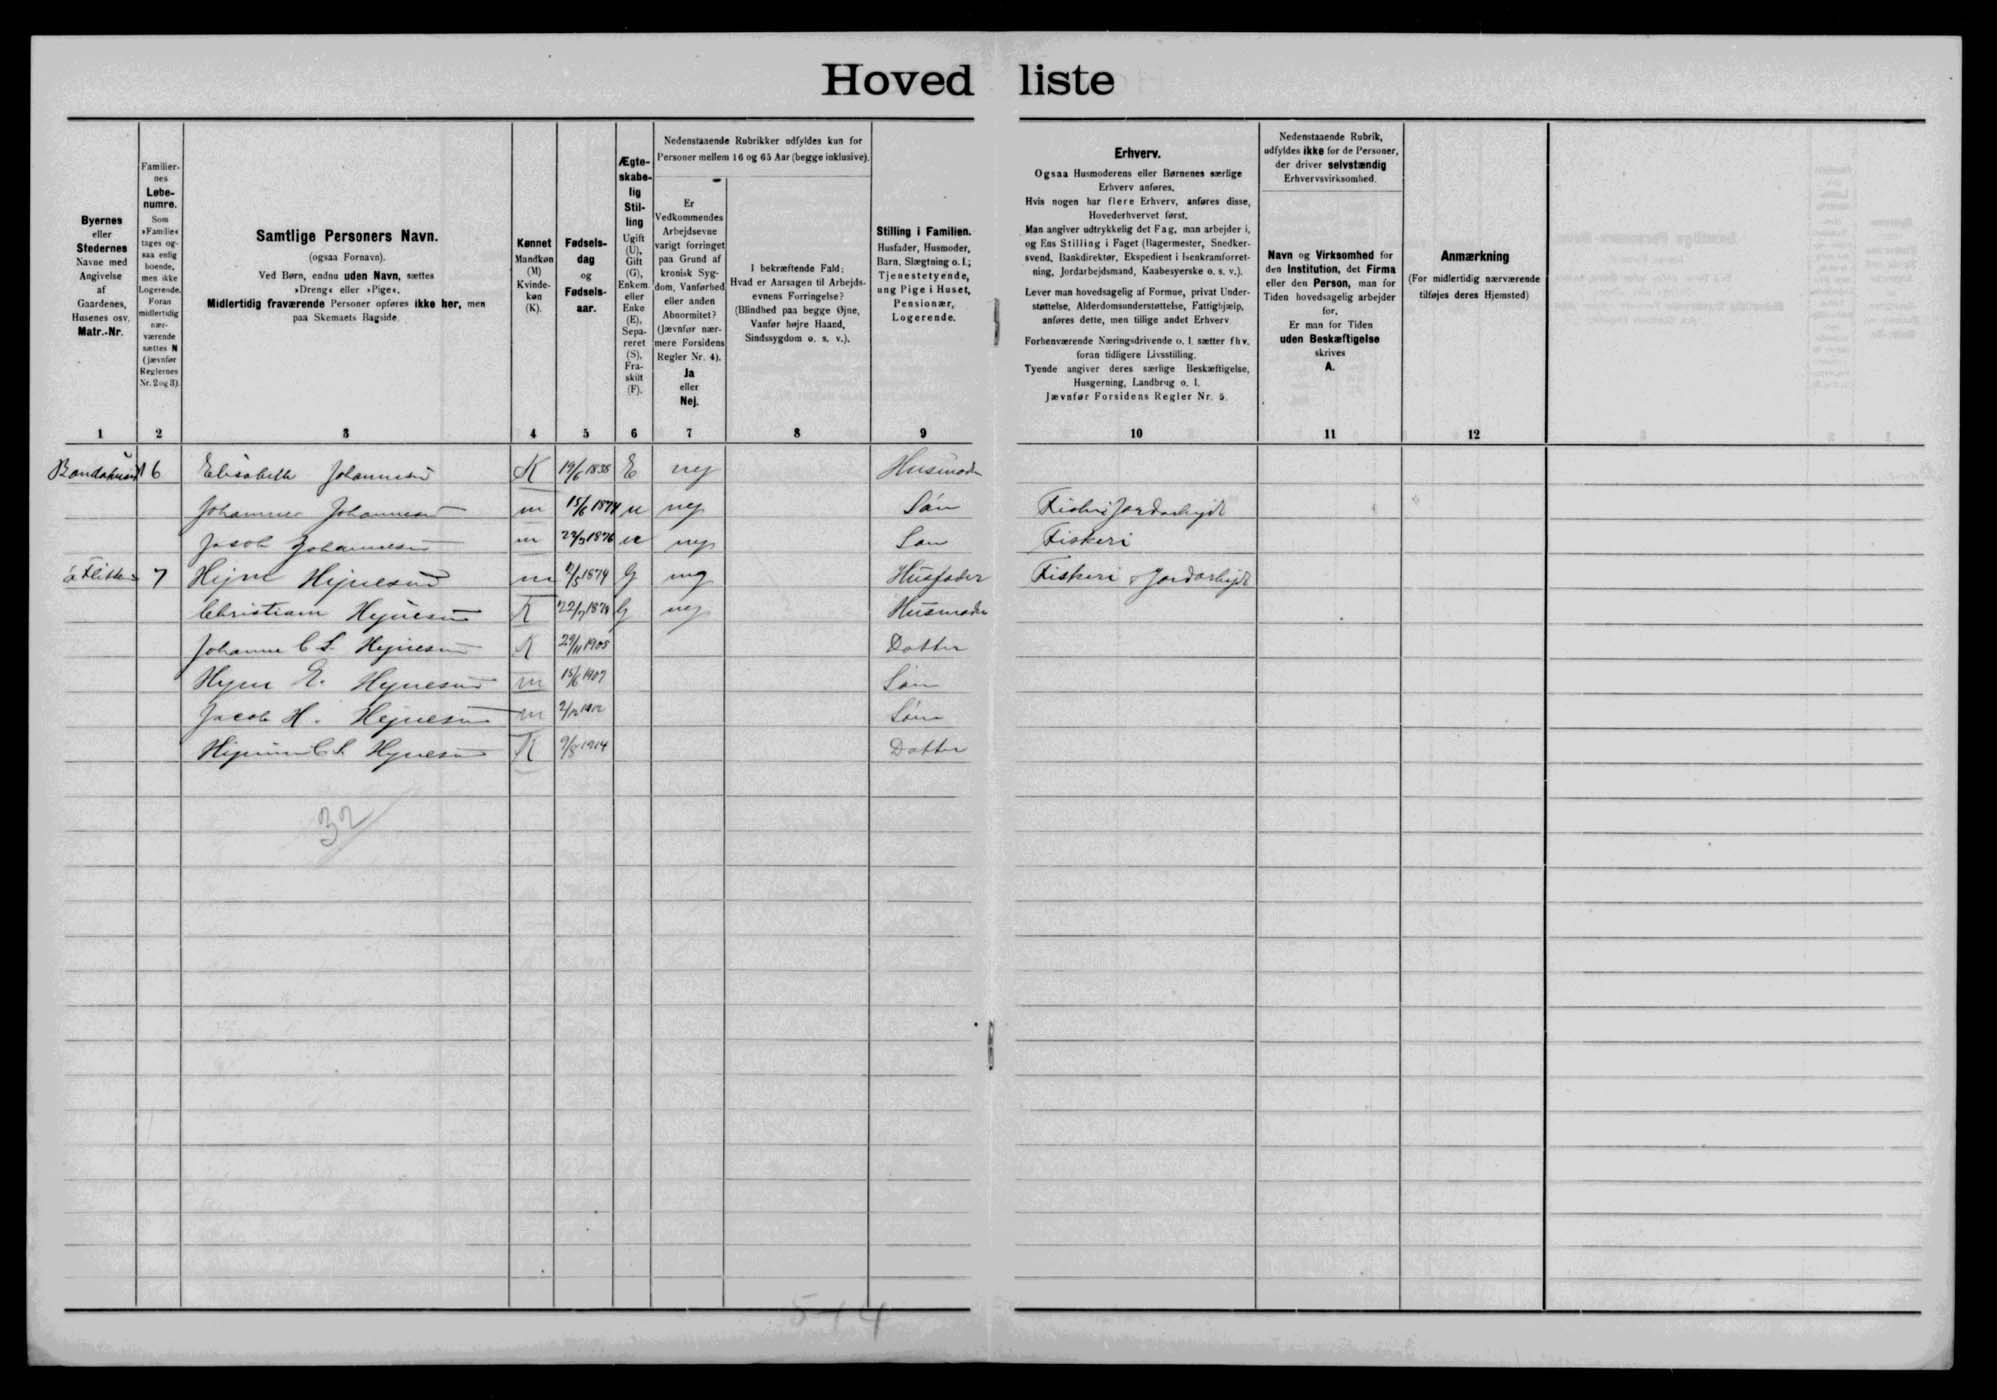 Hovedliste
Byernes
eller
Stedernes
Navne med
Angivelse
af
Gaardenes,
Husenes osv.
Matr.-Nr.
Familier-
nes
Løbe-
numre.
Som
»Familie«
tages og-
saa enlig
boende,
men ikke
Logerende.
Foran
midlertidig
nær-
værende
sættes N
(jævnfør
Reglernes
Nr. 2 og 3).
Samtlige Personers Navn.
(ogsaa Fornavn).
Ved Børn, endnu uden Navn, sættes
»Dreng« eller »Pige«.
Midlertidig fraværende Personer opføres ikke her, men
paa Skemaets Bagside.
Kønnet
Mandkøn
(M)
Kvinde-
køn
(K).
Fødsels-
dag
og
Fødsels-
aar.
Ægte-
skabe-
lig
Stil-
ling
Ugift
(U),
Gift
(G),
Enkem.
eller
Enke
(E),
Sepa-
reret
(S),
Fra-
skilt
(F).
Nedenstaaende Rubrikker udfyldes kun for
Personer mellem 16 og 65 Aar (begge inklusive).
Er
Vedkommendes
Arbejdsevne
varigt forringet
paa Grund af
kronisk Syg-
dom, Vanførhed
eller anden
Abnormitet?
(Jævnfør nær-
mere Forsidens
Regler Nr. 4).
Ja
eller
Nej.
I bekræftende Fald:
Hvad er Aarsagen til Arbejds-
evnens Forringelse?
(Blindhed paa begge Øjne,
Vanfør højre Haand,
Sindssygdom o. s. v.).
Stilling i Familien.
Husfader, Husmoder,
Barn, Slægtning o. l.;
Tjenestetyende,
ung Pige i Huset,
Pensionær,
Logerende.
Erhverv.
Ogsaa Husmoderens eller Børnenes særlige
Erhverv anføres.
Hvis nogen har flere Erhverv, anføres disse,
Hovederhvervet først.
Man angiver udtrykkelig det Fag, man arbejder i,
og Ens Stilling i Faget (Bagermester, Snedker-
svend, Bankdirektør, Ekspedient i Isenkramforret-
ning, Jordarbejdsmand, Kaabesyerske o. s. v.).
Lever man hovedsagelig af Formue, privat Under-
støttelse, Alderdomsunderstøttelse, Fattighjælp,
anføres dette, men tillige andet Erhverv
Forhenværende Næringsdrivende o. l. sætter fhv.
foran tidligere Livsstilling.
Tyende angiver deres særlige Beskæftigelse,
Husgerning, Landbrug o. l.
Jævnfør Forsidens Regler Nr. 5.
Nedenstaaende Rubrik,
udfyldes ikke for de Personer,
der driver selvstændig
Erhvervsvirksomhed.
Navn og Virksomhed for
den Institution, det Firma
eller den Person, man for
Tiden hovedsagelig arbejder
for.
Er man for Tiden
uden Beskæftigelse
skrives
A.
Anmærkning
(For midlertidig nærværende
tilføjes deres Hjemsted)
1 2 3 4 5 6 7 8 9 10 11 12
6 Elisabeth Johannesen K 19/6 1838 E nej Husmoder
Johannes Johannesen m 15/6 1874 u nej Søn Fiskeri Jordarbejde
Jacob Johannesen m 22/3 1876 u nej Søn Fiskeri
7 Hejne Hejnesen m 2/5 1874 G nej Husfader Fiskeri & Jordarbejde
Christiane Hejnesen K 22/7 1879 G nej Husmoder
Johanne C S. Hejnesen K 29/11 1905 Datter
Hejne E. Hejnesen m 15/6 1907 Søn
Jacob H. Hejnesen m 2/12 1910 Søn
Hejnesen K 9/5 1914 Datter
32
514